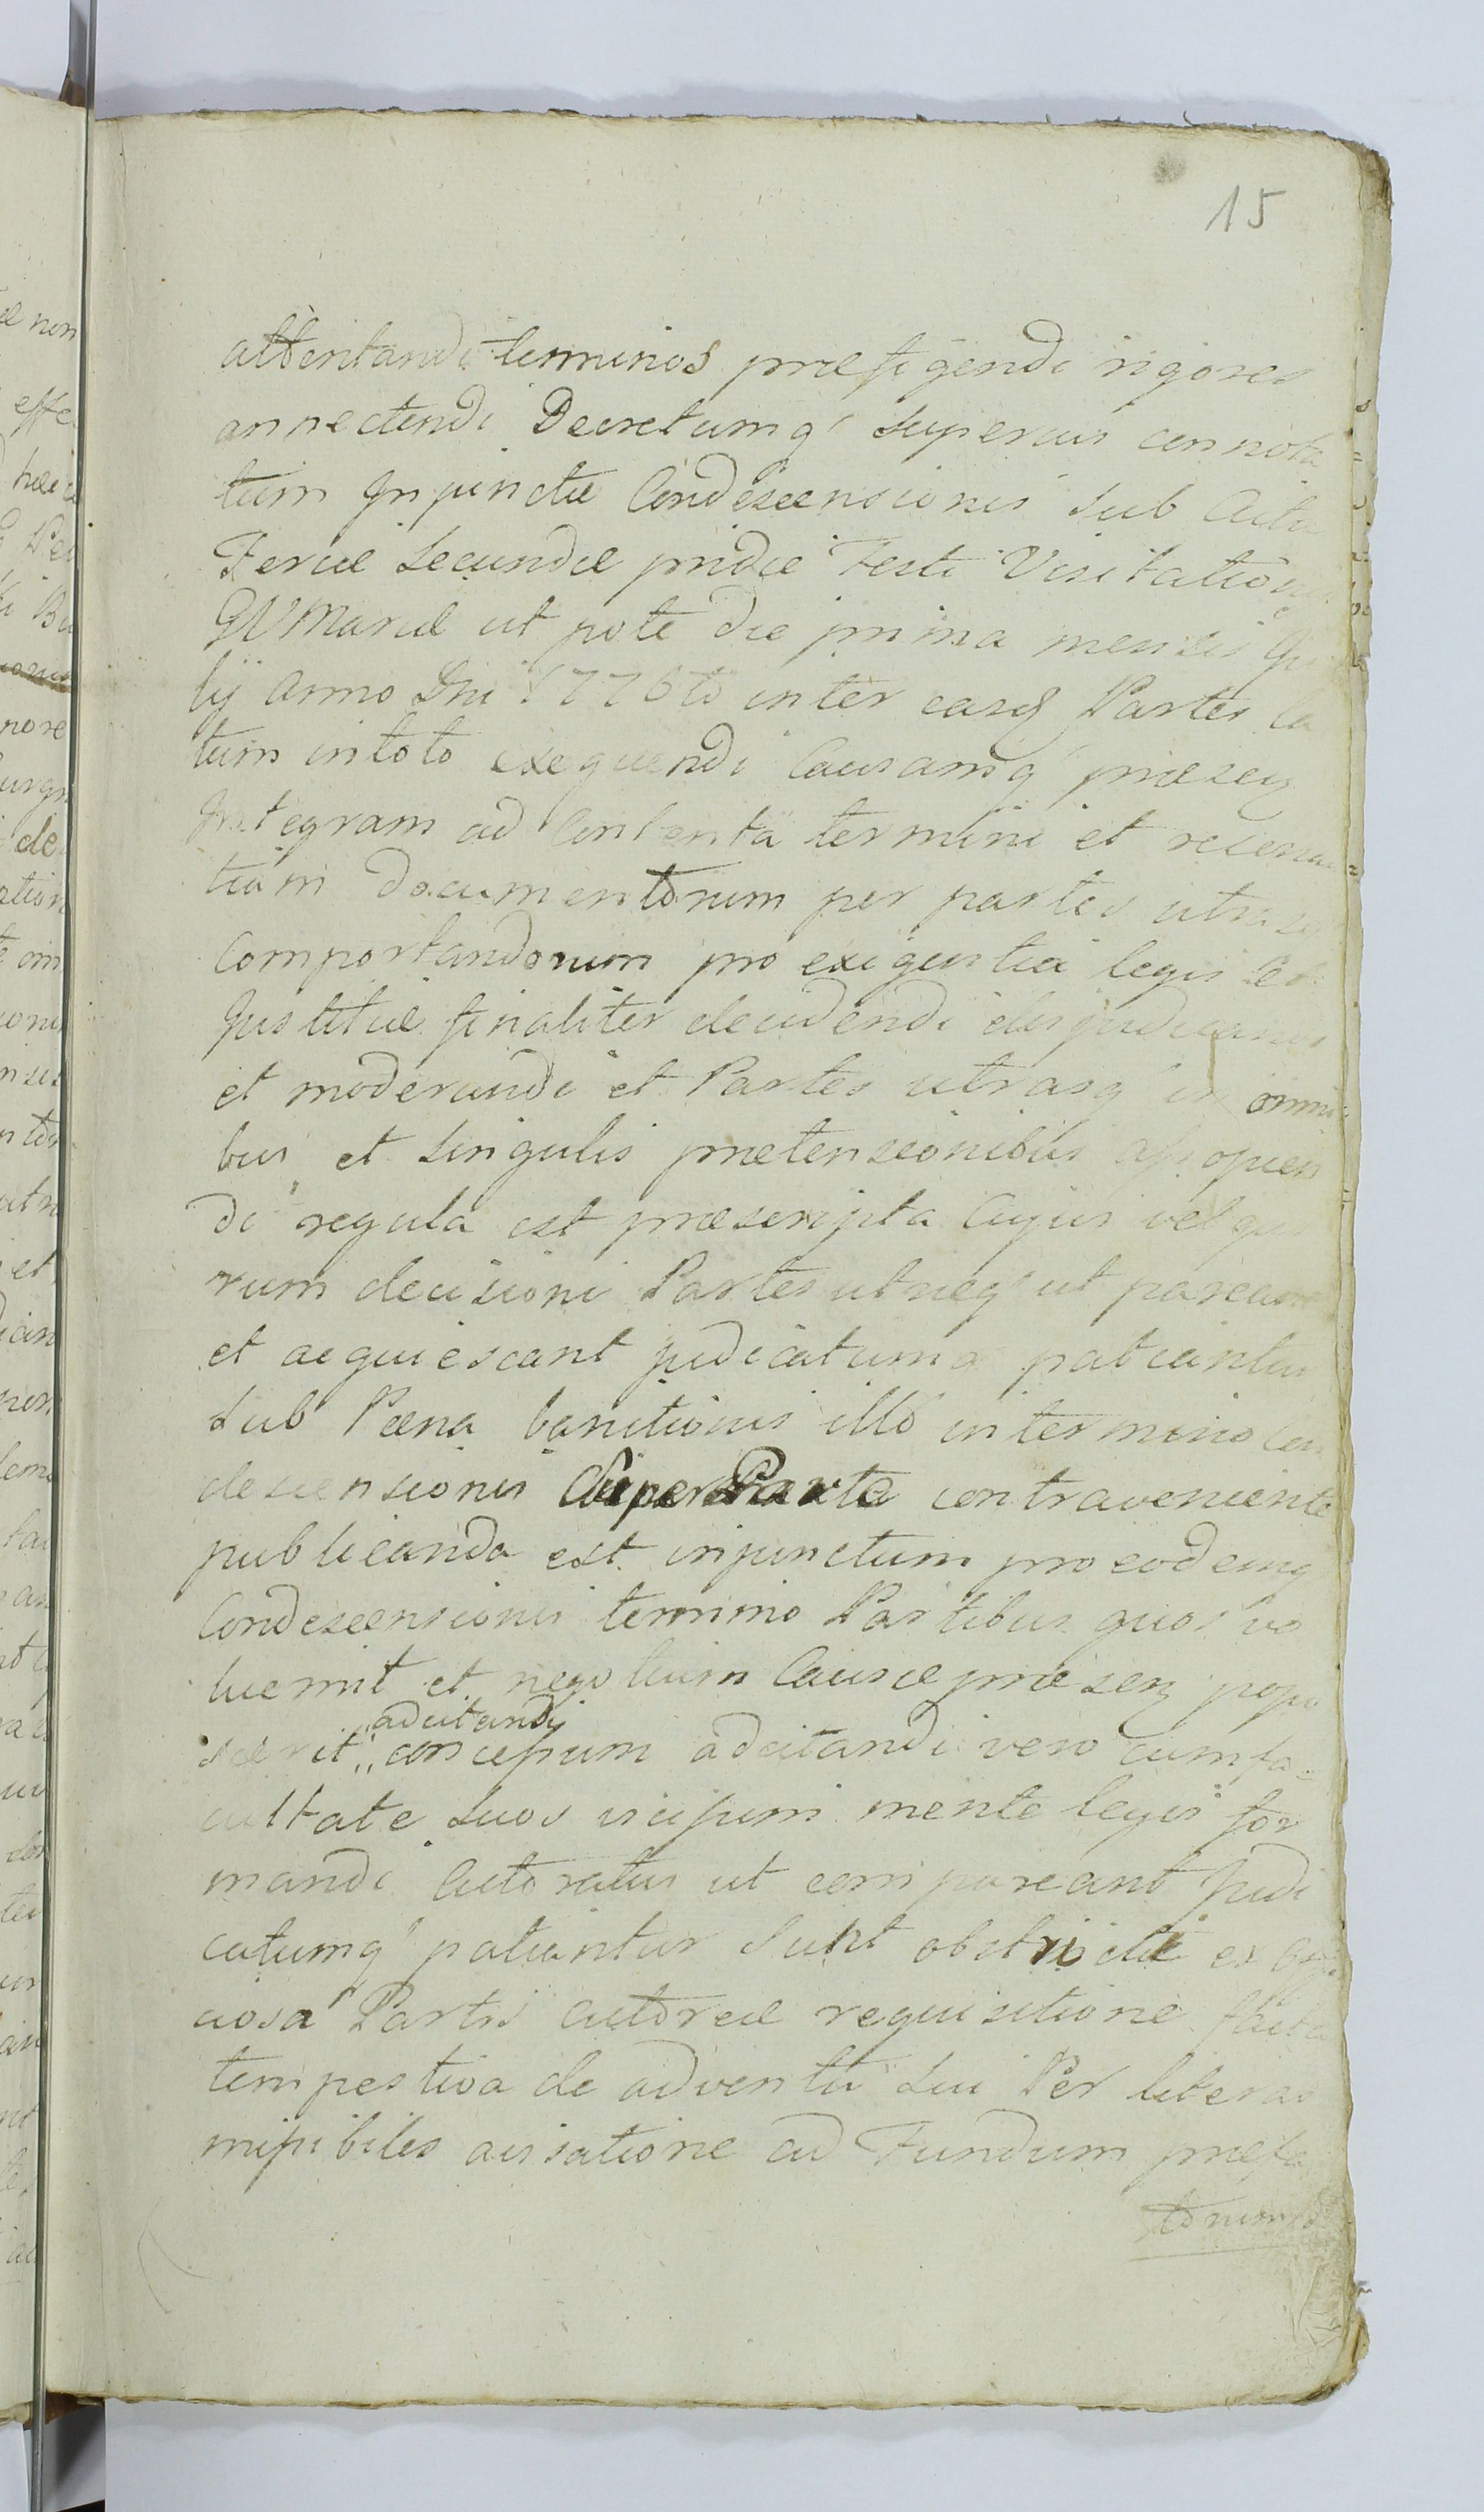 15
attentandi terminos præfigendi rigores
annectendi Decretumq' superius connota
tum Injunctæ Condescensionis sub Actu
Feriæ Secundæ pridie Festi Visitationis
GVMariæ ut pote die prima mensis Ju
lij Anno Dni 1776to inter easq Partes la
tum in toto exequendi Causamq' præsen
Integram ad Contenta termini et
tiam documentorum per partes utrasq
comportandorum pro exigentia legis et
Justitiæ finaliter decidendi
et moderandi et Partes utrasq' in omni
bus et singulis prætensionibus
di regula est præscripta Cujus vel quo
rum decisioni Partes utræq' ut pareant
et acquiescant judicatumq patiantur
sub Pæna banitionis illo in termino con
descensionis super Parte contraveniente
publicanda est injunctum pro eodemq
Condescensionis termino Partibus quos vo
luerint et negotium Causæ præsen popo
scerit „adcitandi consensum adcitandi vero cum fa=
cultate suos in ipsum mente legis for
mandi Actoratus ut compareant Judi
catumq' patiantur sunt obstrictæ ex offi
ciosa Partis Actoreæ requisitione facta
tempestiva de adventu sui Per literas
missibiles avisatione ad Fundum præfa
torum